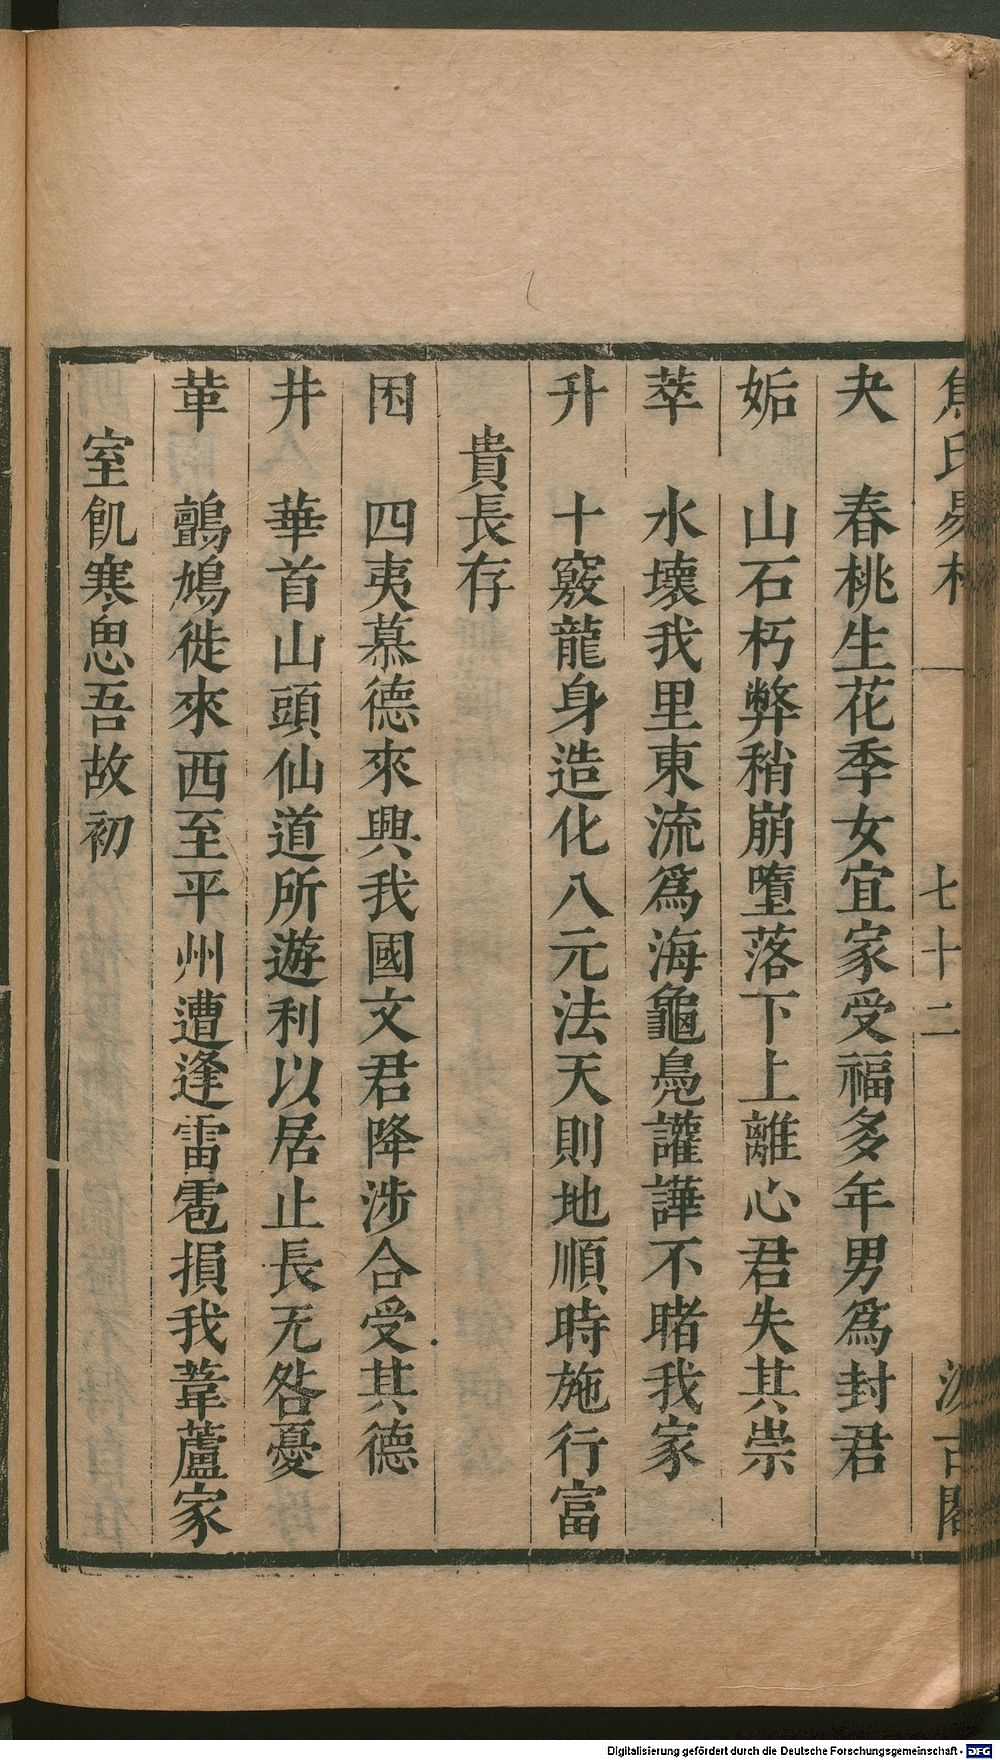 焦氏易林 一 七十二 汲古閣
夬 春桃生花季女宜家受福多年男爲封君
姤 山石朽弊稍崩墮落下上離心君失其崇
萃 水壞我里東流爲海龜鳧讙譁不睹我家
升 十竅龍身造化八元法天則地順時施行富
貴長存
困 四夷慕德來興我國文君降涉合受其德
井 華首山頭仙道所遊利以居止長无咎憂
革 鸇鳩徙來西至平州遭逢雷雹損我葦蘆家
室飢寒思吾故初
Digitalisierung gefördert durch die Deutsche Forschungsgemeinschaft - DFG